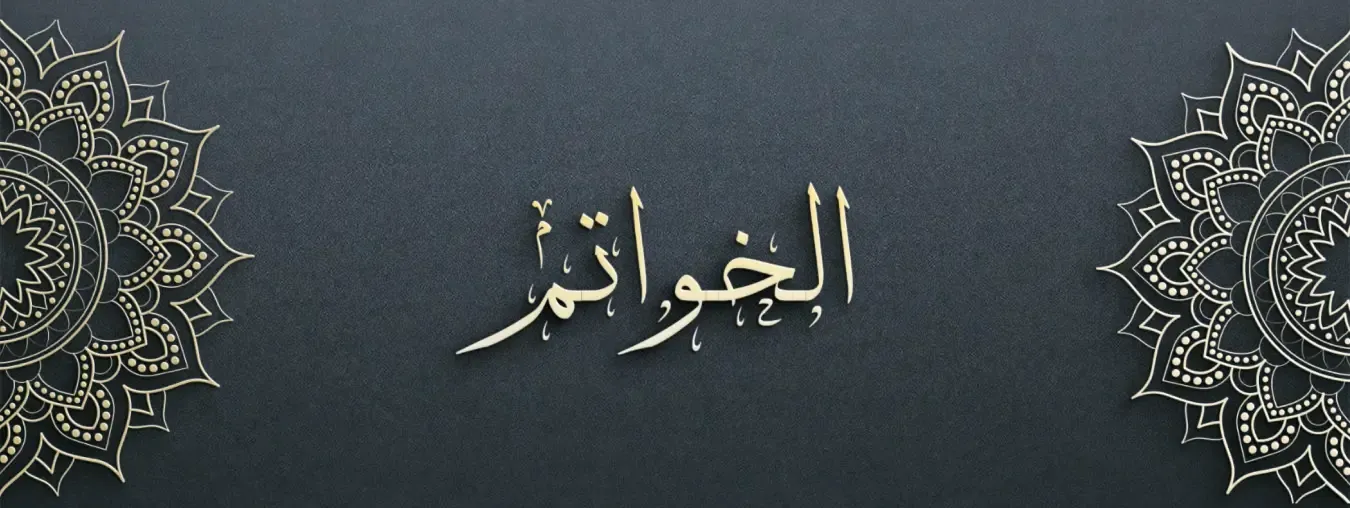 الخواتم